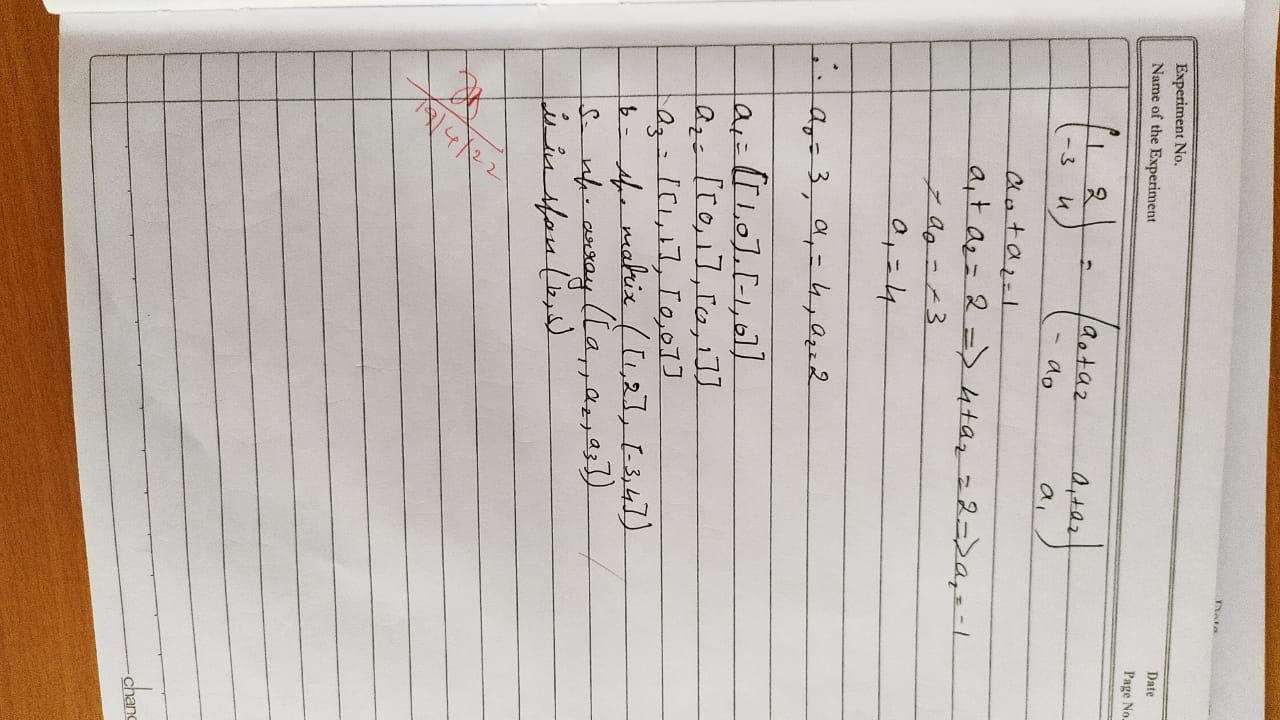 Date
Experiment No.
Name of the Experiment
Date
Page No.
(1 2
-3 4) = (a₀+a₂ a₁+a₂
-a₀ a₁)
a₀+a₂=1
a₁+a₂=2 => 4+a₂=2 => a₂=-1
-a₀=-3
a₁=4
∴ a₀=3, a₁=4, a₂=2
a₁=[[1,0],[-1,0]]
a₂=[[0,1],[0,1]]
a₃=[[1,1],[0,0]]
b= sp.matrix([1,2],[-3,4])
S= np.array([a₁,a₂,a₃])
is in span(b,s)
19/4/22